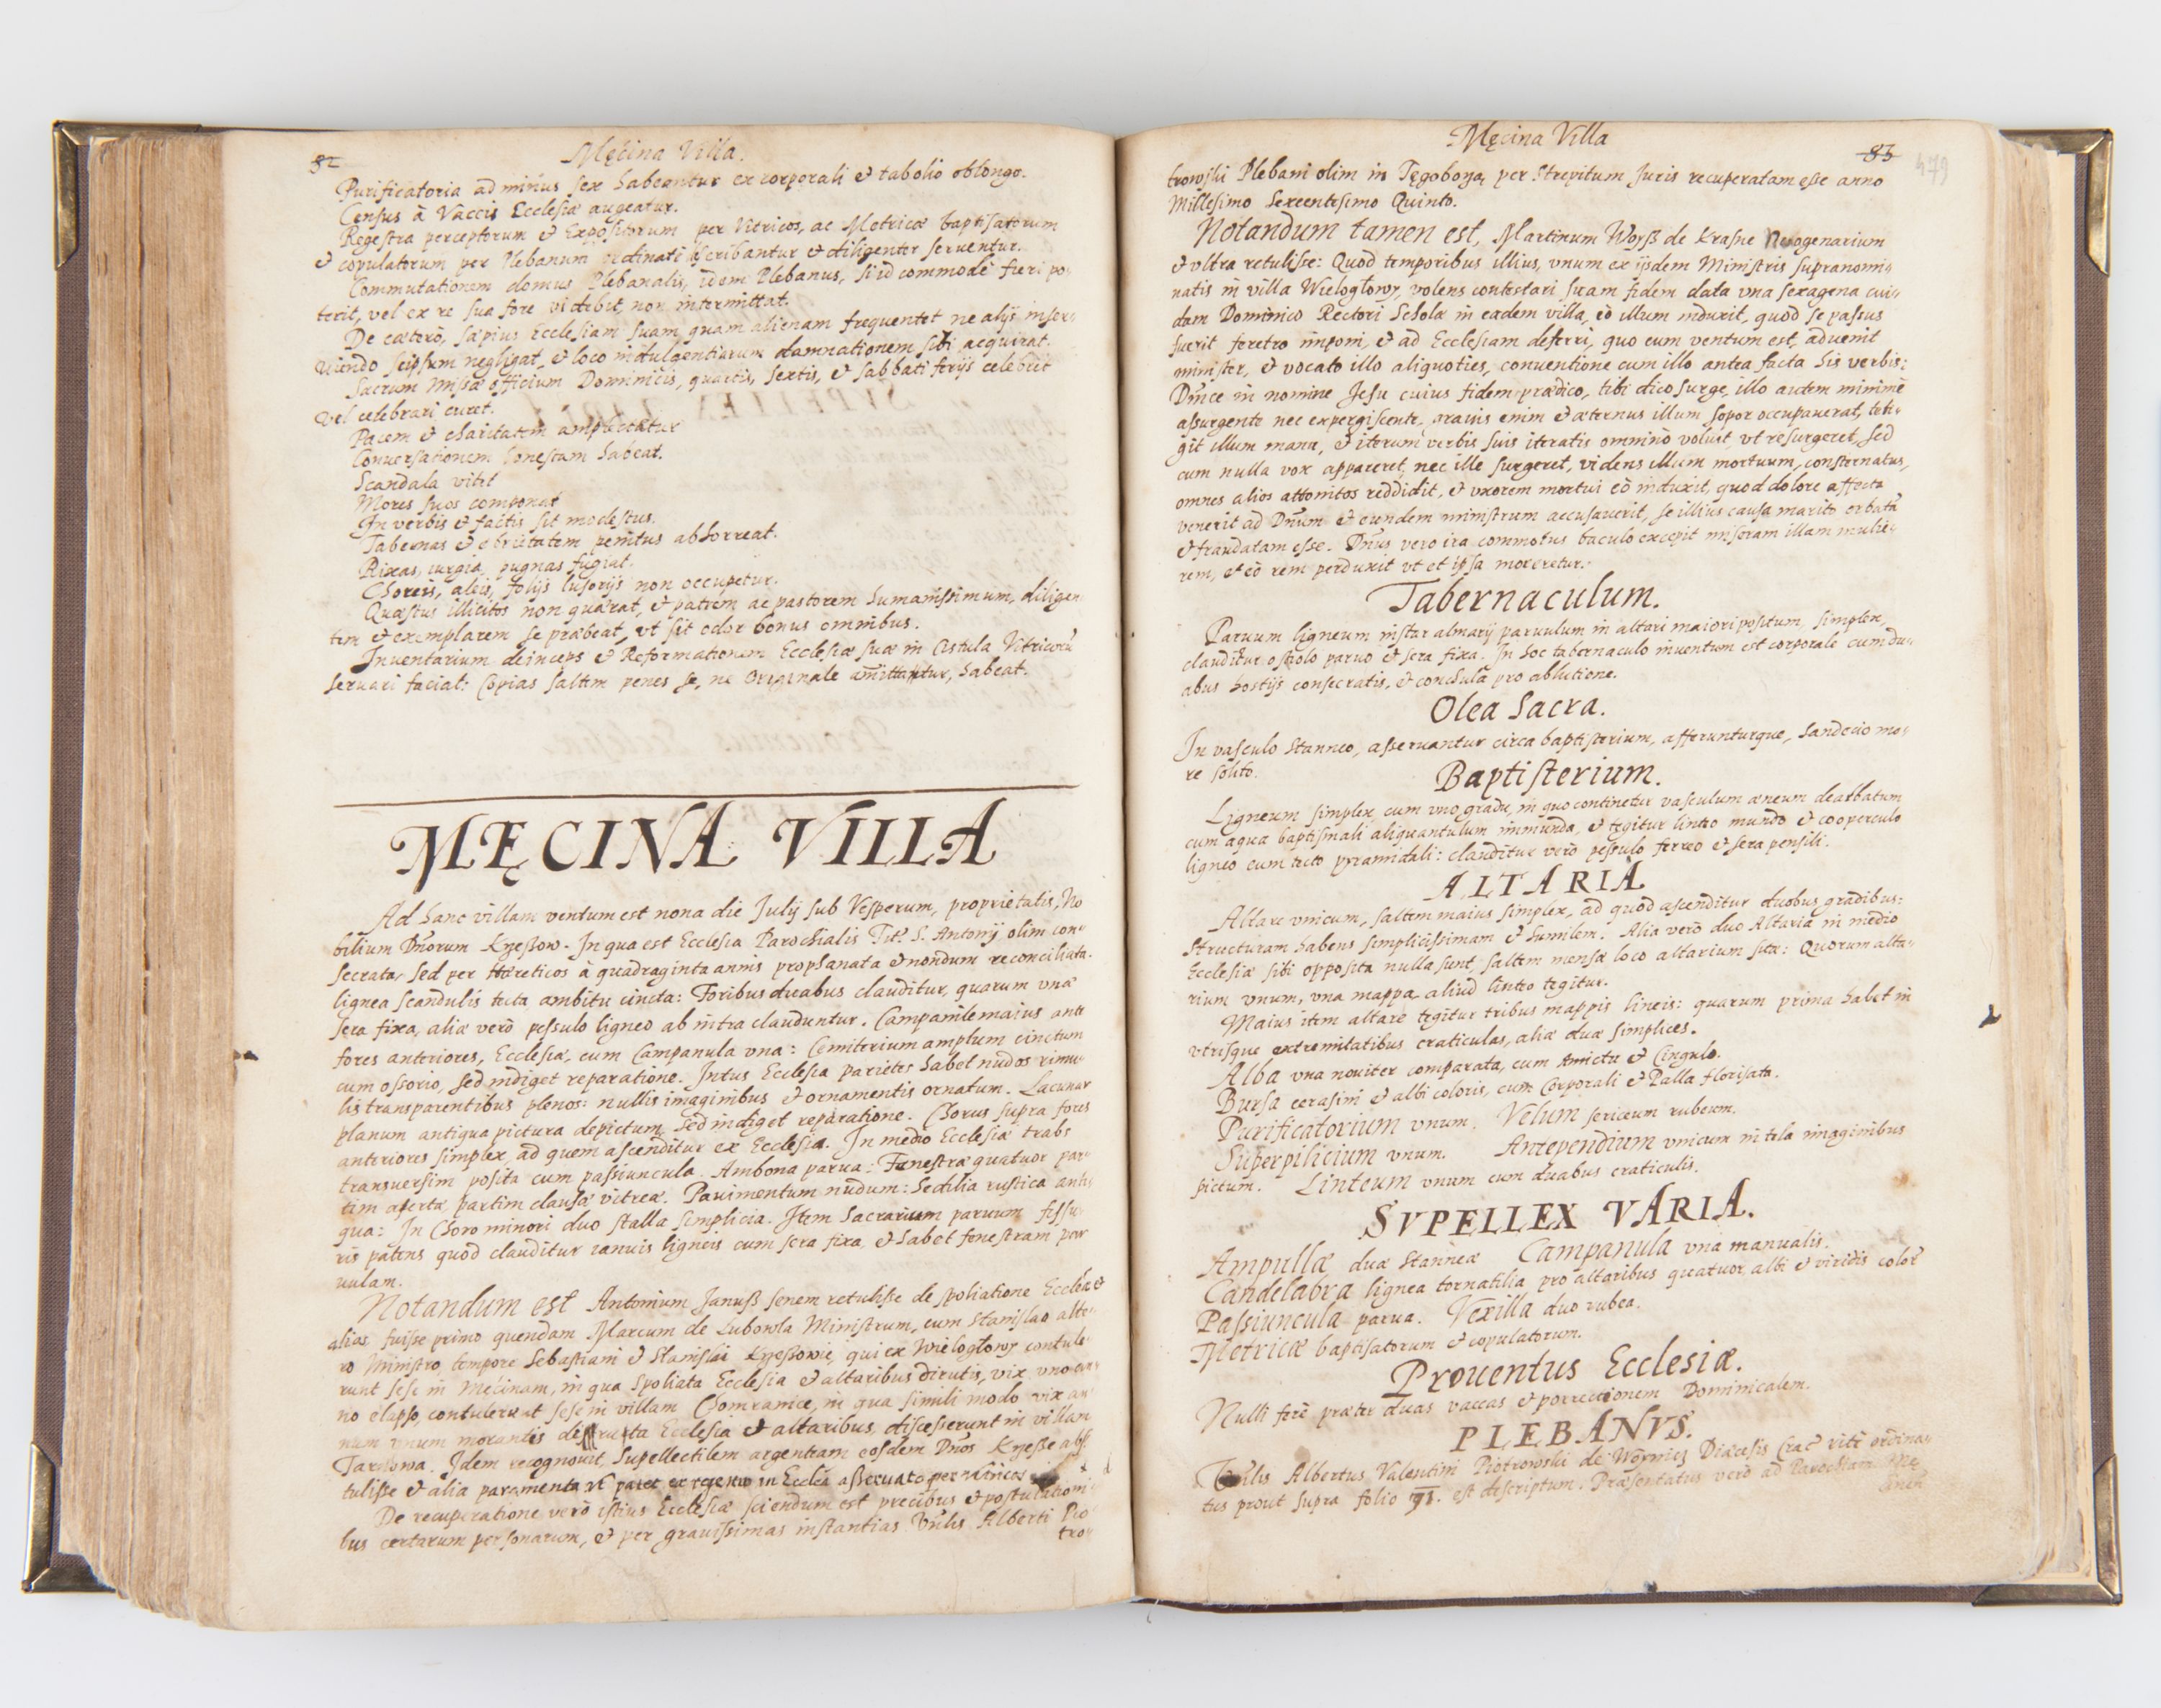 82
Męćina Villa.
Purificatoria ad minus sex habeantur ex corporali et tabolio oblongo.
Census à Vaccis Ecclesiæ augeatur.
Regestra perceptorum et Expositorum per Vitricos, ac Metricæ baptisatorum
et copulatorum per Plebanum ordinatè scribantur et diligenter seruentur.
Commutationem domus Plebanalis, idem Plebanus, si id commodè fieri po-
terit, vel ex re sua fore videbit, non intermittat.
De cæterò, sæpius Ecclesiam suam, quam alienam frequentet ne alijs inser-
uiendo seipsum negligat, et loco indulgentiarum damnationem sibi acquirat.
Sacrum Missæ officium Dominicis, quartis, sextis, et sabbati ferijs celebret
vel celebrari curet.
Pacem et charitatem amplectatur
Conuersationem honestam habeat.
Scandala vitet
Mores suos componat
In verbis et factis sit modestus.
Tabernas et ebrietatem penitus abhorreat.
Rixas, iurgia, pugnas fugiat.
Choreis, aleis, folijs lusorijs non occupetur.
Quæstus illicitos non quærat, et patrem ac pastorem humanissimum, diligen
tem et exemplarem se præbeat, vt sit odor bonus omnibus.
Inuentarium deinceps et Reformationem Ecclesiæ suæ in Cistula Vitricorũ
seruari faciat: Copias saltem penes se, ne Originale amittatur, habeat.
MĘCINA VILLA
Ad hanc villam ventum est nona die Julij sub Vesperum, proprietatis, No
bilium Dñorum Krzeßow. In qua est Ecclesia Parochialis Tit? S. Antonij olim con-
secrata, sed per Hæreticos à quadraginta annis prophanata et nondum reconciliata.
lignea scandulis tecta ambitu cincta: Foribus duabus clauditur, quarum vna
sera fixa, aliæ verò pessulo ligneo ab intra clauduntur. Campanile maius ante
fores anteriores, Ecclesiæ, cum Campanula vna: Cemiterium amplum cinctum
cum ossorio, sed indiget reparatione. Intus Ecclesia parietes habet nudos rimu-
lis transparentibus plenos: nullis imaginibus et ornamentis ornatum. Lacunar
planum antiqua pictura depictum, sed indiget reparatione. Chorus supra fores
anteriores simplex, ad quem ascenditur ex Ecclesia. In medio Ecclesiæ trabs
transuersim posita cum passiuncula. Ambona parua: Fenestræ quatuor par-
tim aperta, partim clausæ vitreæ. Pauimentum nudum: Sedilia rustica anti-
qua: In Choro minori duo stalla simplicia. Item Sacrarium paruum fissu-
ris patens quod clauditur ianuis ligneis cum sera fixa, et habet fenestram par
uulam.
Notandum est Antonium Januß senem retulisse de spoliatione Ecclesiæ et
alias fuisse primo quendam Marcum de Lubowla Ministrum, cum Stanislao alte-
ro Ministro tempore Sebastiani et Stanislai Krzeßowie, qui ex Wielogłowy contule-
runt sese in Męćinam, in qua spoliata Ecclesia et altaribus dirutis, vix vno an-
no elapso, contulerunt sese in villam Chomranice, in qua simili modo vix an
num vnum morantes destructa Ecclesia et altaribus, discesserunt in villam
Tarnowa. Idem recognouit, Supellectilem argenteam eosdem Dños Krzeße abs-
tulisse et alia paramenta vt patet ex regestro in Ecclia asseruato per vitricos
De recuperatione verò istius Ecclesiæ sciendum est precibus et postulationi-
bus certarum personarum, et per grauissimas instantias Vnlis Alberti Pio
tro-
Męcina Villa
83
479
trowski Plebani olim in Tęgoborzą per Strepitum Juris recuperatam esse anno
Millesimo Sexcentesimo Quinto.
Notandum tamen est, Martinum Woyß de Krasne Nonogenarium
et vltra retulisse: Quòd temporibus illius, vnum ex ijsdem Ministris supranomi-
natis in villa Wielogłowy, volens contestari suam fidem data vna sexagena cui-
dam Dominico Rectori Scholæ in eadem villa, eò illum induxit, quod se passus
fuerit feretro imponi, et ad Ecclesiam deferri, quo cum ventum est, aduenit
minister, et vocato illo aliquoties, conuentione cum illo antea facta his verbis:
Dñice in nomine Jesu cuius fidem prædico, tibi dico surge, illo autem minimè
assurgente nec expergiscente, grauis enim et æternus illum sopor occupauerat, teti-
git illum manu, et iterum verbis suis iteratis omninò voluit, vt resurgeret, sed
cum nulla vox appareret, nec ille surgeret, videns illum mortuum, consternatus,
omnes alios attonitos reddidit, et vxorem mortui eò induxit, quod dolore affecta
venerit ad Dñum et eundem ministrum accusauerit, se illius causa marito orbatã
et fraudatam esse. Dñus vero ira commotus baculo excepit miseram illam mulie-
rem, et eò rem perduxit vt et ipsa moreretur.
Tabernaculum.
Paruum ligneum instar almarij paruulum in altari maiori positum, simplex,
clauditur ostiolo paruo et sera fixa. In hoc tabernaculo inuentum est corporale cum du-
abus hostijs consecratis, et conchula pro ablutione.
Olea Sacra.
In vasculo stanneo, asseruantur circa baptisterium, afferunturque, Sandecio mo-
re solito.
Baptisterium.
Ligneum simplex cum vno gradu, in quo continetur vasculum æneum dealbatum
cum aqua baptismali aliquantulum immunda, et tegitur linteo mundo et cooperculo
ligneo cum tecto pyramidali: clauditur verò pessulo ferreo et sera pensili.
ALTARIA
Altare vnicum, saltem maius simplex, ad quod ascenditur duobus gradibus:
Structuram habens simplicissimam et humilem. Alia verò duo Altaria in medio
Ecclesiæ sibi opposita nulla sunt, saltem mensæ loco altarium sitæ: Quorum alta-
rium vnum, vna mappa aliud linteo tegitur.
Maius item altare tegitur tribus mappis lineis: quarum prima habet in
vtrisque extremitatibus craticulas, aliæ duæ simplices.
Alba vna nouiter comparata, cum Amictu et Cingulo.
Bursa cerasini et albi coloris, cum Corporali et Palla florisata.
Purificatorium vnum. Velum sericeum rubeum.
Superpilicium vnum. Antependium vnicum in tela imaginibus
pictum. Linteum vnum cum duabus craticulis.
SVPELLEX VARIA.
Ampullæ duæ Stanneæ Campanula vna manualis.
Candelabra lignea tornatilia pro altaribus quatuor, albi et viridis color
Passiuncula parua. Vexilla duo rubea.
Metricæ baptisatorum et copulatorum.
Prouentus Ecclesiæ.
Nulli ferè præter duas vaccas et porrectionem Dominicalem.
PLEBANVS.
Albertus Valentini Piotrowski de Woynicz Diæcesis Crac? ritè ordina-
tus prout supra folio 91. est descriptum. Præsentatus verò ad Parochiam